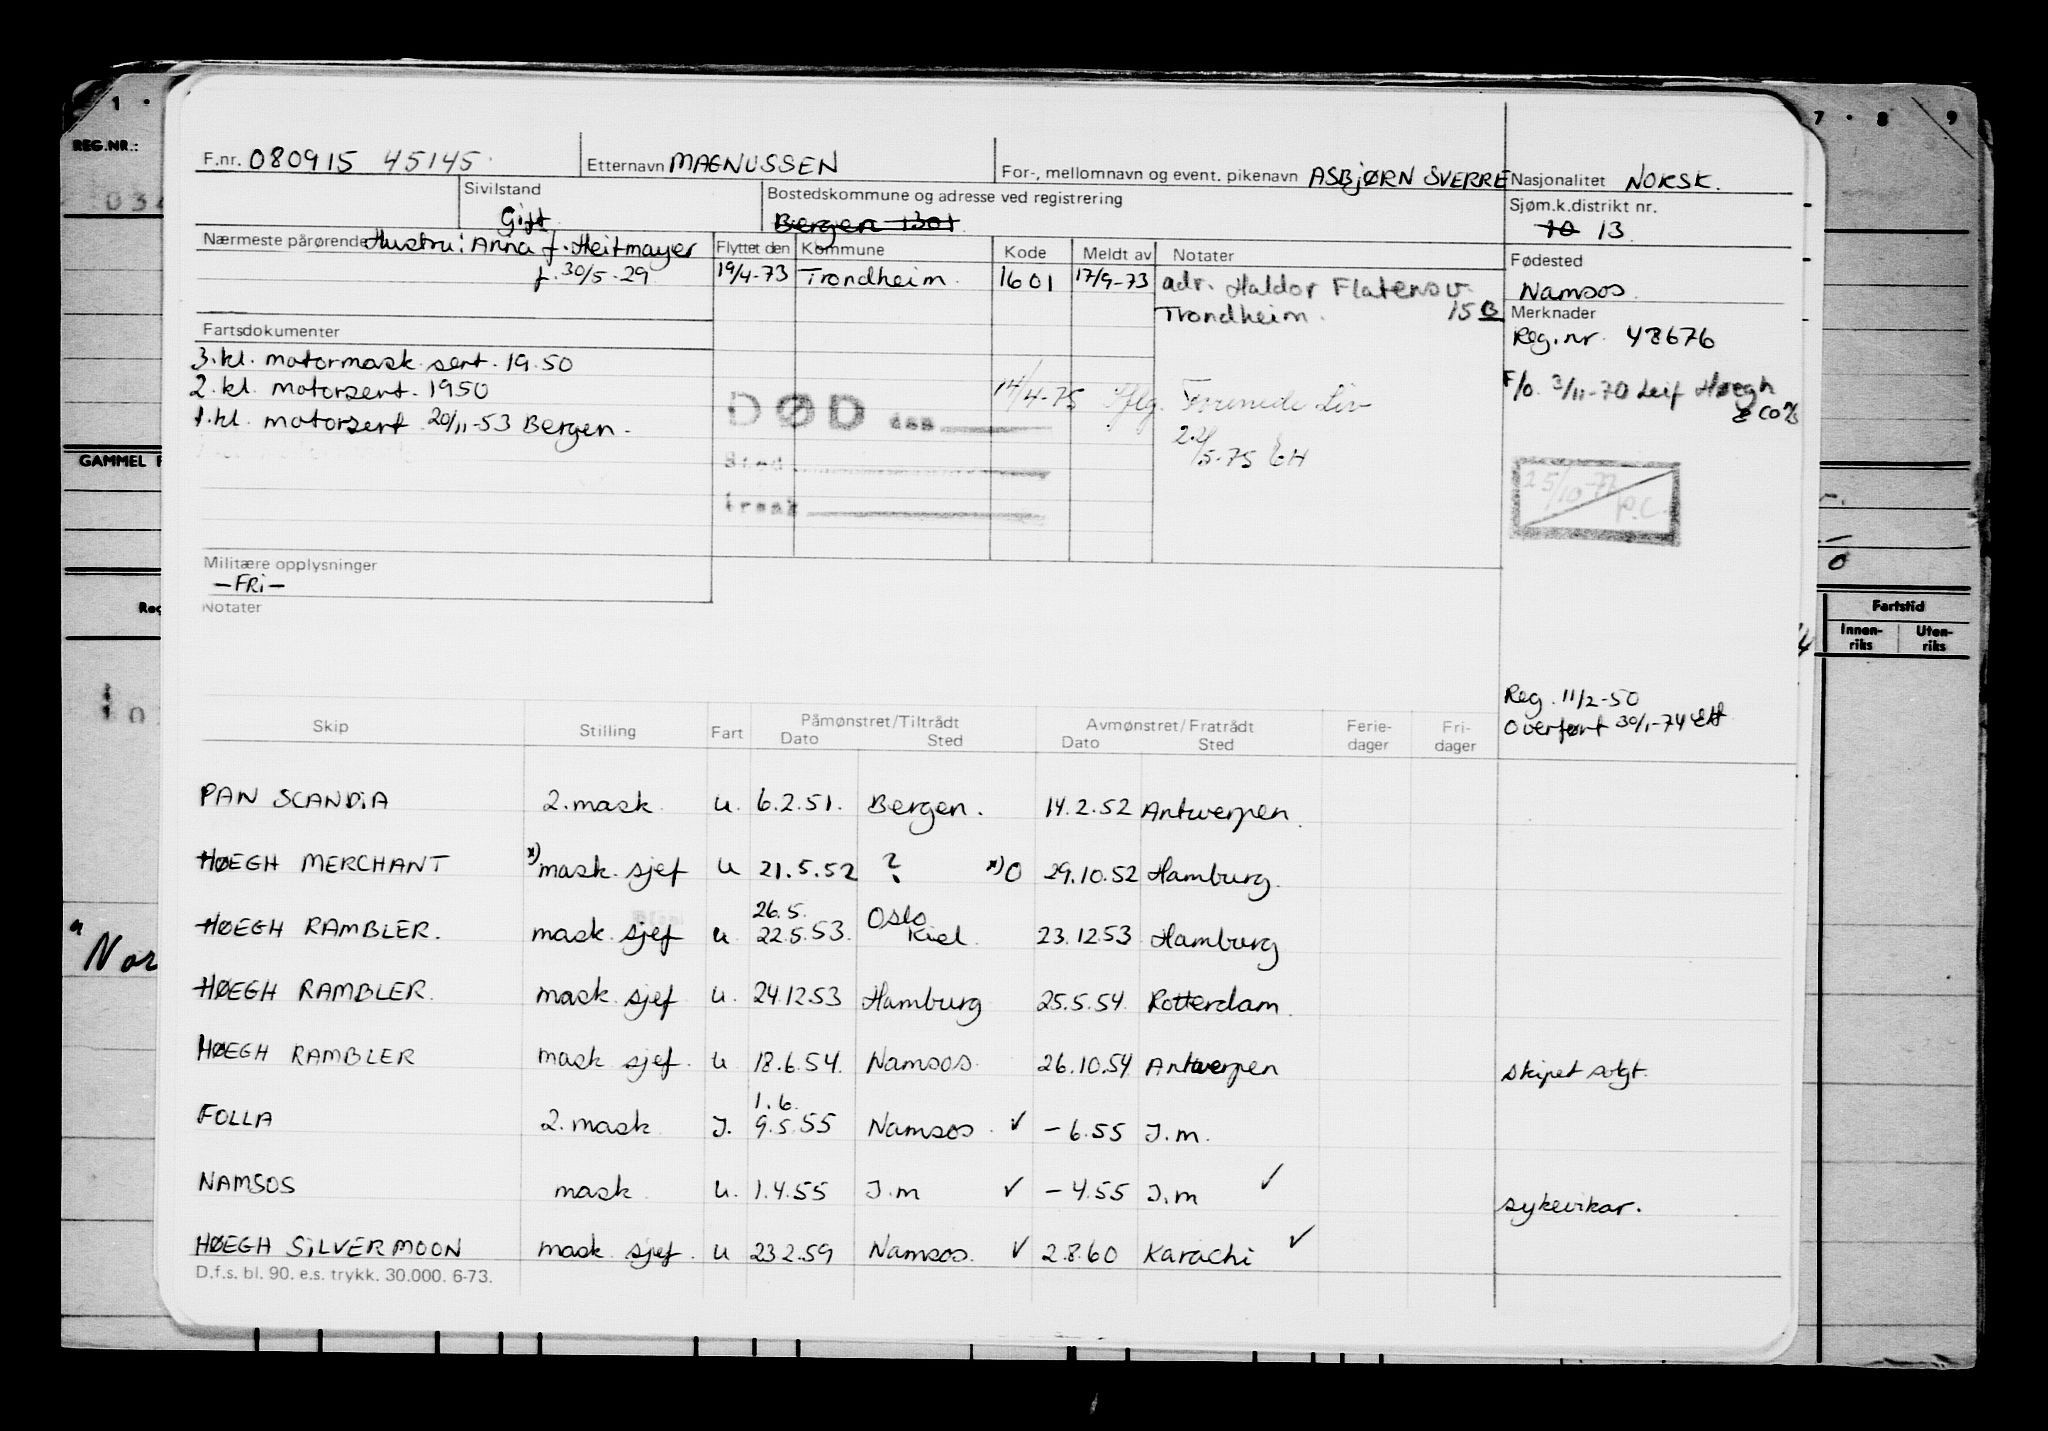 1 •
7 • 8 9
REG.NR.:
F.nr. 080915 45145
Etternavn MAGNUSSEN
For-, mellomnavn og event. pikenavn ASBJØRN SVERRE
Nasjonalitet NORSK.
Sivilstand
Gift
Bostedskommune og adresse ved registrering
Bergen 1301
Sjøm.k.distrikt nr.
10 13
Nærmeste pårørende Hustru: Anna f. Heitmayer
f. 30/5-29
Flyttet den Kommune Kode Meldt av Notater
19/4-73 Trondheim. 1601 17/9-73 adr. Haldor Flatensv.
Trondheim. 15 B
Fødested
Namsos.
Merknader
Reg.nr. 48676
F/o. 3/11-70 Leif Høegh
& CO %
Fartsdokumenter
3. kl. motormask sert. 19.50
2. kl. motorsert. 1950
1. kl. motorsert 20/11-53 Bergen.
DØD den
Sted
trank
14/4-75 Iflg. Forenede Liv
22/5-75 EH
25/10-77
P.C.
GAMMEL F
Militære opplysninger
—FRi—
Notater
Reg
Fartstid
Innen-riks Uten-riks
Reg. 11/2-50
Overført 30/1-74 EH
Skip Stilling Fart Påmønstret/Tiltrådt Avmønstret/Fratrådt Ferie-dager Fri-dager
Dato Sted Dato Sted
PAN SCANDiA 2. mask. u. 6.2.51. Bergen. 14.2.52 Antwerpen.
HØEGH MERCHANT x) mask. sjef u 21.5.52 ? x) O 29.10.52 Hamburg.
26.5. Oslo
HØEGH RAMBLER. mask. sjef u. 22.5.53. Kiel. 23.12.53 Hamburg
HØEGH RAMBLER. mask. sjef u. 24.12.53 Hamburg 25.5.54. Rotterdam.
HØEGH RAMBLER mask sjef. u. 18.6.54. Namsos. 26.10.54 Antwerpen skipet solgt.
1.6.
FOLLA 2. mask. J. 9.5.55 Namsos. ✓ – 6.55 J.m.
NAMSOS mask. u. 1.4.55 J.m ✓ – 4.55 J.m ✓ sykevikar.
HØEGH SiLVERMOON mask. sjef. u 23.2.59 Namsos. ✓ 2.8.60 Karachi ✓
D.f.s. bl. 90. e.s. trykk. 30.000. 6-73.
"Nor